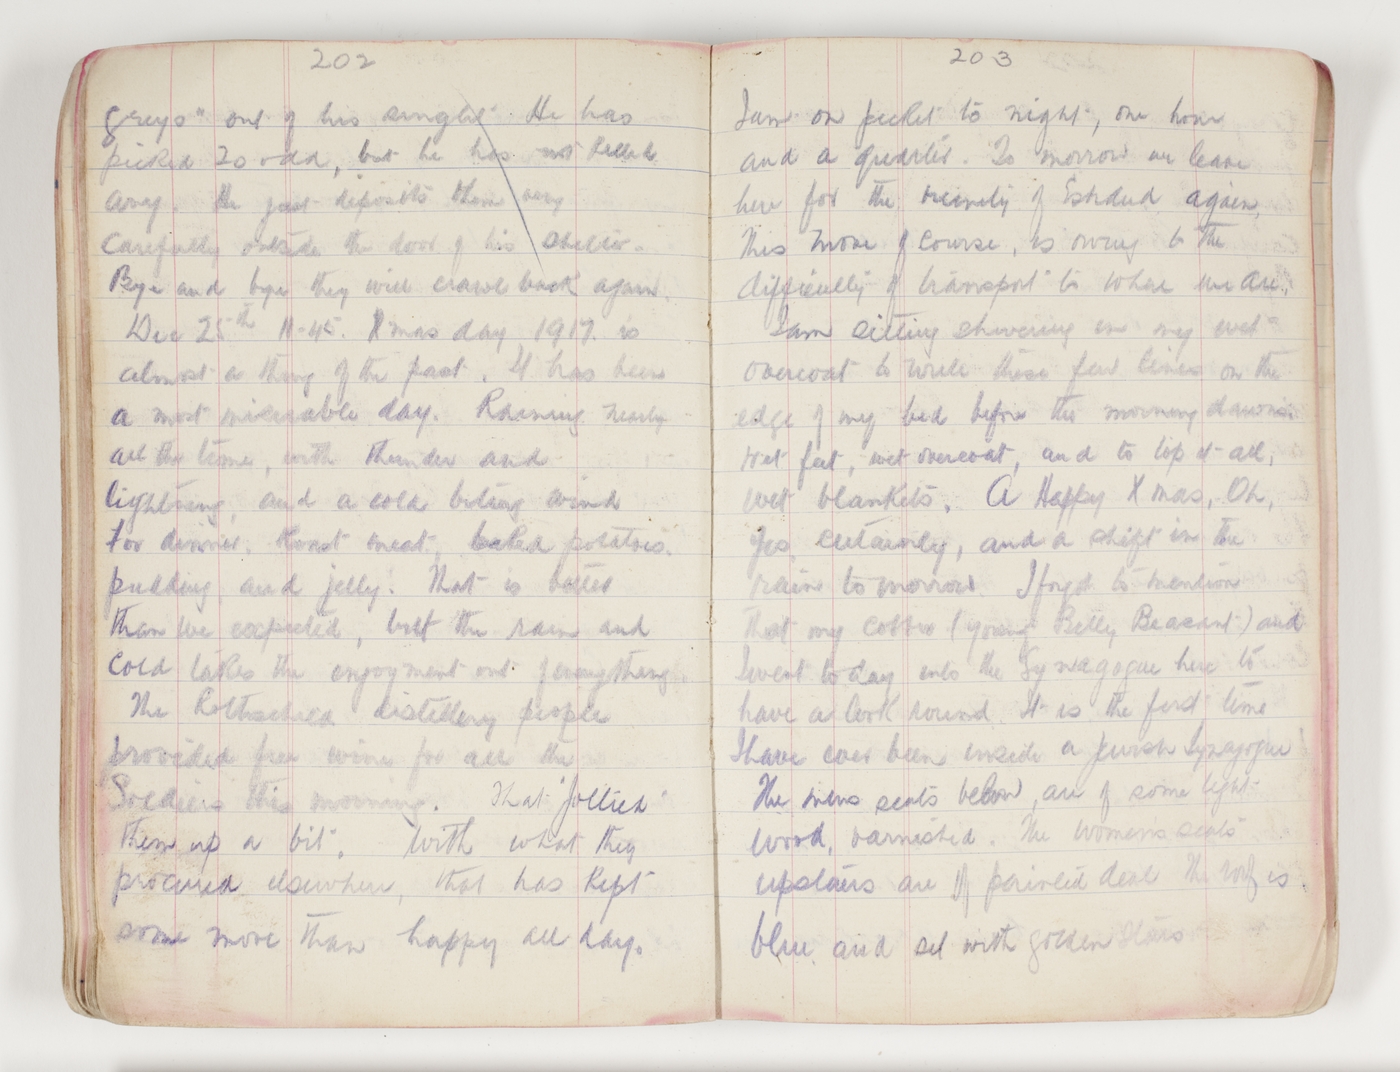 202
greys" out of his singlet. He has
picked 20 odd, but he has not killed
any. He just deposits them very
carefully outside the door of his shelter.
Bye and bye they will crawl back again.
Dec 25th 11-45. Xmas day 1917. is
almost a thing of the past. It has been
a most miserable day. Raining nearly
all the time, with thunder and
lightning, and a cold biting wind
for dinner. Roast meat, baked potatoes.
pudding and jelly! That is better
than we expected, but the rain and
cold takes the enjoyment out of everything.
The Rothschild distillery people
provided free wine for all the
Soldiers this morning. That "jollied"
them up a bit. With what they
procured elsewhere, that has kept
some more than happy all day.
203
I am on picket to night, one hour
and a quarter. To morrow we leave
here for the vicinity of Esdud again,
this move of course, is owing to the
difficulty of transport to where we are.
I am sitting shivering in my wet
overcoat to write these few lines on the
edge of my bed before the morning dawns.
Wet feet, wet overcoat, and to top it all,
wet blankets. A Happy Xmas, Oh,
yes certainly, and a shift in the
rain to morrow. I forgot to mention
that my cobber (young Betty Beasant) and
I went to day into the Synagogue here to
have a look round. It is the first time
I have ever been inside a Jewish Synagogue
The mens seats below, are of some light
wood, varnished. The womens seats
upstairs are of painted deal The roof is
blue and set with golden stars